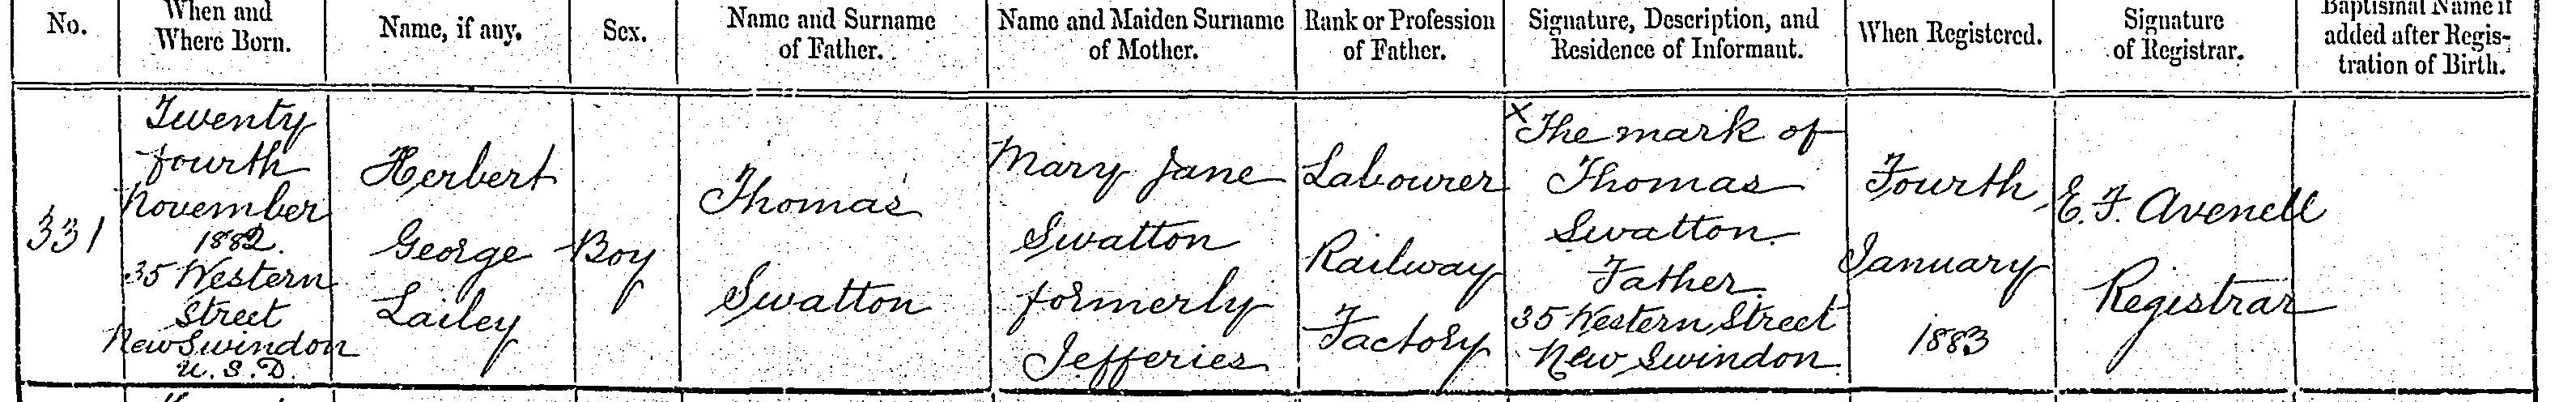 No.
When and
Where Born.
Name, if any.
Sex.
Name and Surname
of Father.
Name and Maiden Surname
of Mother.
Rank or Profession
of Father.
Signature, Description, and
Residence of Informant.
When Registered.
Signature
of Registrar.
Baptismal Name if
added after Regis-
tration of Birth.
331
Twenty
fourth
November
1882.
35 Western
Street
New Swindon
U.S.D.
Herbert
George
Lailey
Boy
Thomas
Swatton
Mary Jane
Swatton
formerly
Jefferies
Labourer
Railway
Factory
X The mark of
Thomas
Swatton
Father
35 Western Street
New Swindon
Fourth
January
1883
E. F. Avenell
Registrar